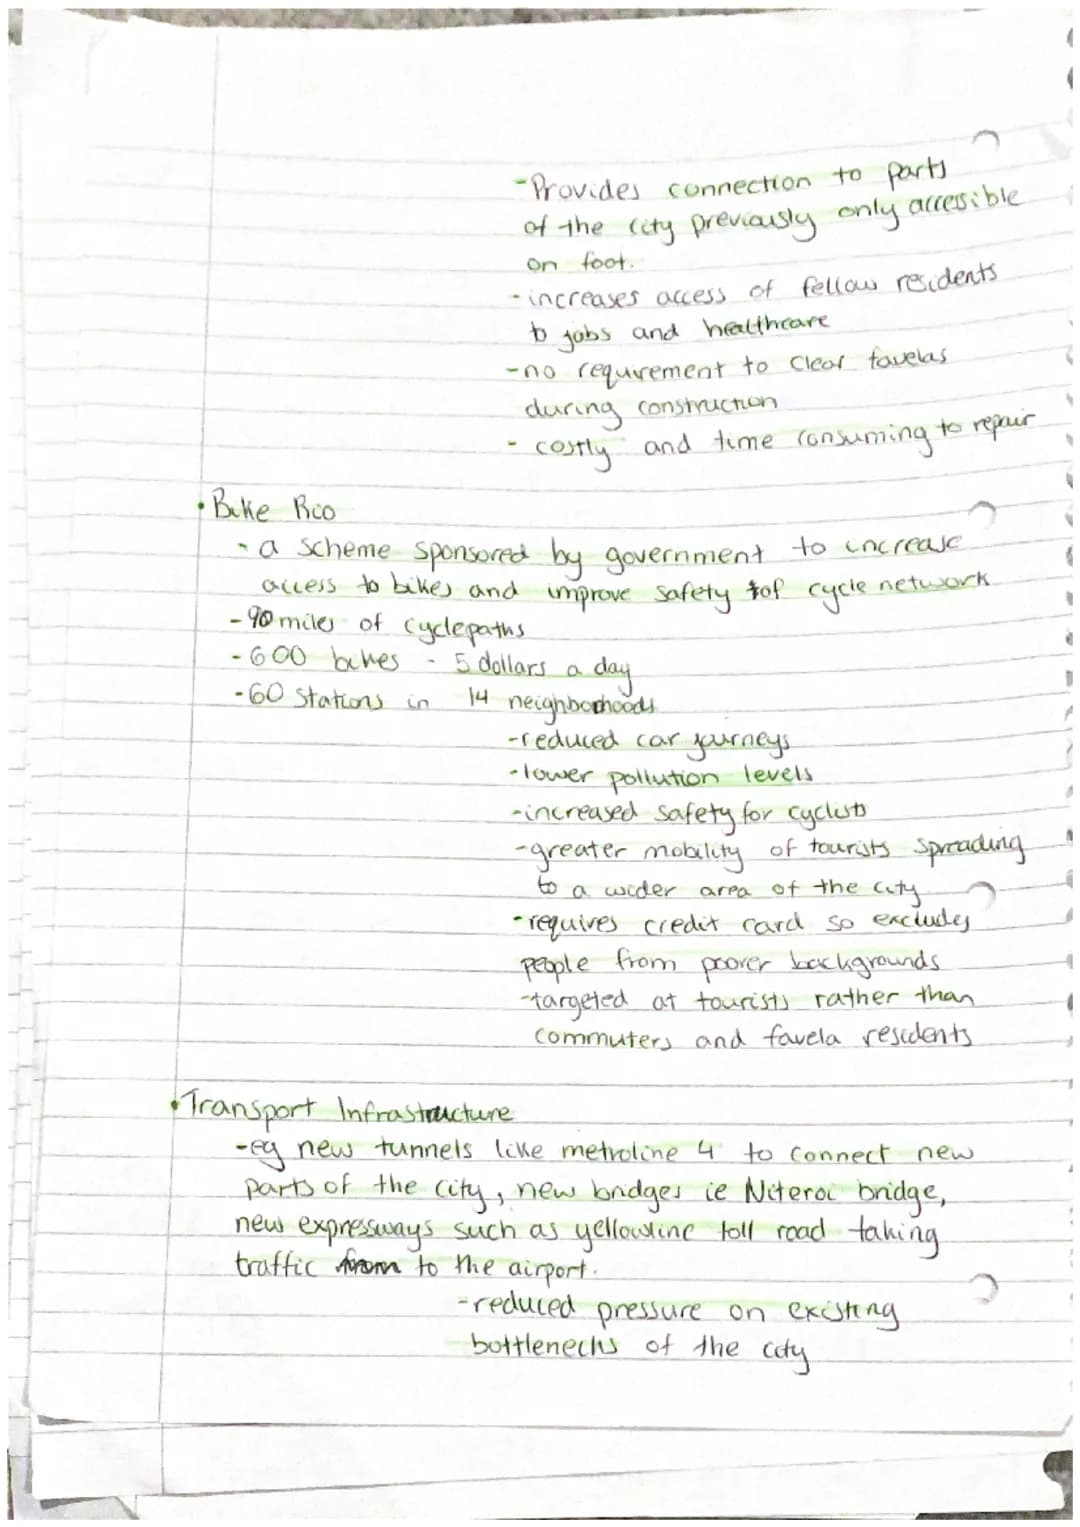 -Provides connection to parts
of the city previously only accessible
on foot.
-increases access of fellow residents
to jobs and healthcare
-no requirement to clear favelas
during construction
- costly and time consuming to repair
• Bike Rio
- a scheme sponsored by government to increase
access to bikes and improve safety of cycle network
-90 miles of cyclepaths
-600 bikes - 5 dollars a day
-60 stations in 14 neighborhoods
-reduced car journeys
-lower pollution levels
-increased safety for cyclists
-greater mobility of tourists spreading
to a wider area of the city
-requires credit card so excludes
people from poorer backgrounds
-targeted at tourists rather than
commuters and favela residents
• Transport Infrastructure
-eg new tunnels like metroline 4 to connect new
parts of the city, new bridges ie Niteroi bridge,
new expressways such as yellowline toll road taking
traffic from to the airport.
-reduced pressure on existing
bottlenecks of the city